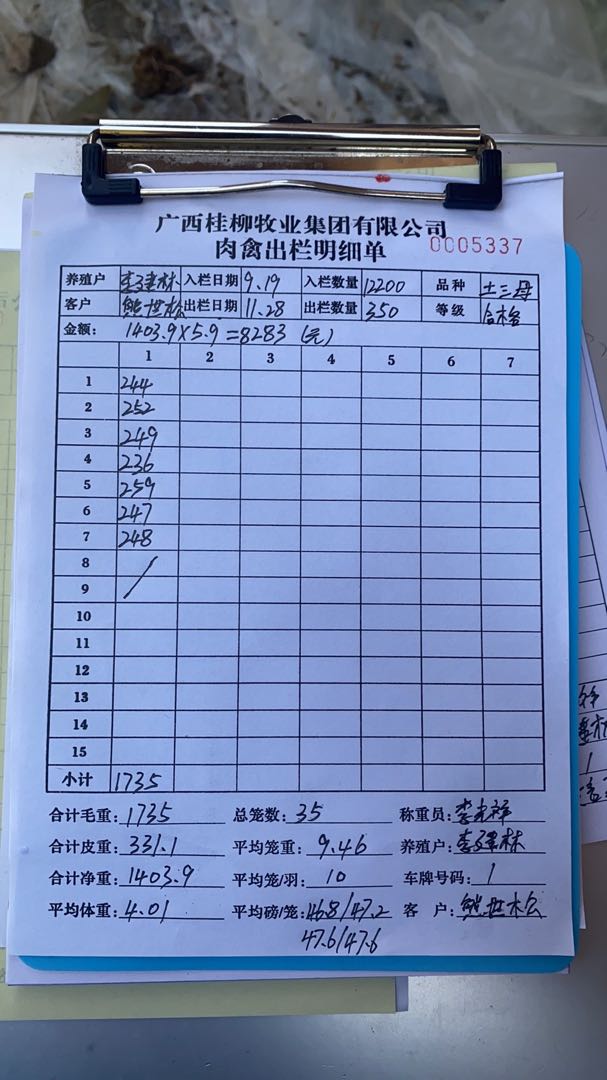 广西桂柳牧业集团有限公司
肉禽出栏明细单 0005337
养殖户 李建林 入栏日期 9.19 入栏数量 12200 品种 土三母
客户 熊世松 出栏日期 11.28 出栏数量 350 等级 合格
金额: 1403.9×5.9=8283 (元)
1 2 3 4 5 6 7
1 244
2 252
3 249
4 236
5 259
6 247
7 248
8 /
9
10
11
12
13
14
15
小计 1735
合计毛重: 1735 总笼数: 35 称重员: 李光祥
合计皮重: 331.1 平均笼重: 9.46 养殖户: 李建林
合计净重: 1403.9 平均笼/羽: 10 车牌号码: 1
平均体重: 4.01 平均磅/笼: 46.8/47.2 客 户: 熊世松
47.6/47.6